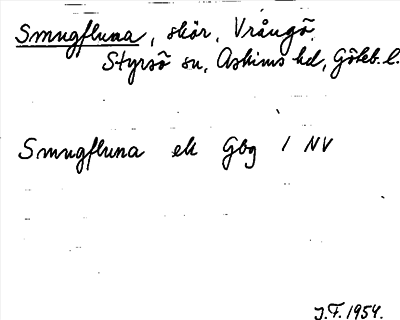 Smugfluna, skär, Vrångö,
Styrsö sn, Askims hd, Göteb. l.
Smugfluna ek Gbg 1 NV
J.F. 1954.